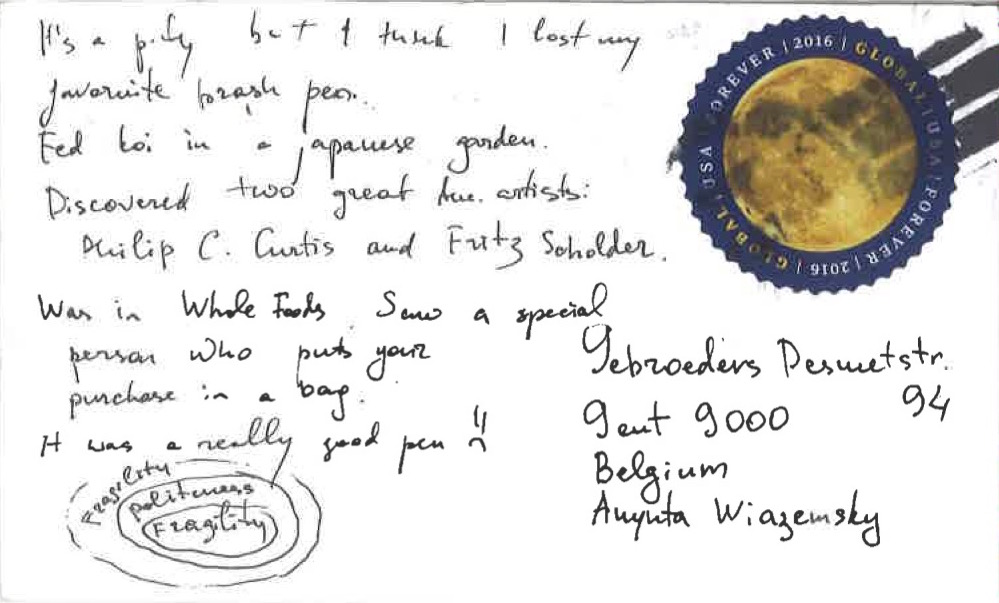 It's a pity but I think I lost my
favoruite brash pen.
Fed koi in a Japanese garden.
Discovered two great Am. artists:
Philip C. Curtis and Fritz Scholder.
Was in Whole Foods. Saw a special
person who puts your
purchase in a bag.
It was a really good pen
Fragility
politeness
Fragility
GLOBAL | USA | FOREVER | 2016 | GLOBAL | USA | FOREVER | 2016 |
Gebroeders Desmetstr.
94
Gent 9000
Belgium
Anyuta Wiazemsky